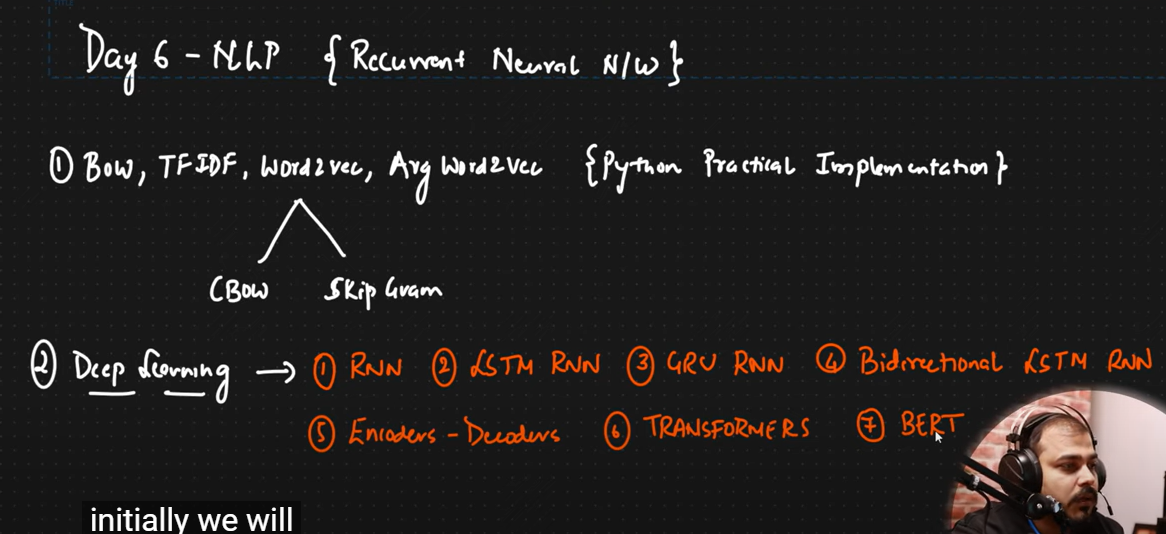 Day 6 - NLP { Recurrent Neural N/W }
① Bow, TFIDF, Word2vec, Avg Word2Vec {Python Practical Implementation}
CBOW Skip Gram
② Deep Learning → ① RNN ② LSTM RNN ③ GRU RNN ④ Bidirectional LSTM RNN
⑤ Encoders - Decoders ⑥ TRANSFORMERS ⑦ BERT
initially we will